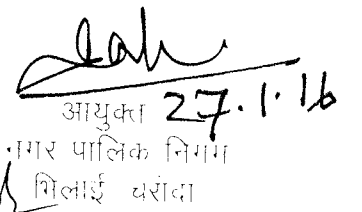 आयुक्त 27.1.16
नगर पालिक निगम
भिलाई चरोदा